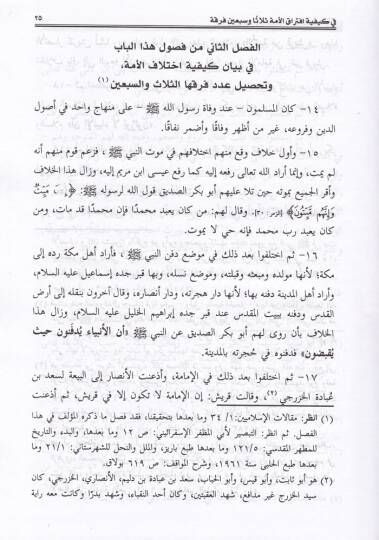 في كيفية افتراق الأمة ثلاثًا وسبعين فرقة
٢٥
الفصل الثاني من فصول هذا الباب
في بيان كيفية اختلاف الأمة،
وتحصيل عدد فرقها الثلاث والسبعين (١)
١٤- كان المسلمون - عند وفاة رسول الله ﷺ - على منهاج واحد في أصول
الدين وفروعه، غير من أظهر وفاقًا وأضمر نفاقًا.
١٥- وأول خلاف وقع منهم اختلافهم في موت النبي ﷺ، فزعم قوم منهم أنه
لم يمت، وإنما أراد الله تعالى رفعه إليه كما رفع عيسى ابن مريم إليه، وزال هذا الخلاف
وأقر الجميع بموته حين تلا عليهم أبو بكر الصديق قول الله لرسوله ﷺ: ﴿إِنَّكَ مَيِّتٌ
وَإِنَّهُم مَّيِّتُونَ﴾ [الزمر: ٣٠]. وقال لهم: من كان يعبد محمدًا فإن محمدًا قد مات، ومن
كان يعبد رب محمد فإنه حي لا يموت.
١٦- ثم اختلفوا بعد ذلك في موضع دفن النبي ﷺ، فأراد أهل مكة رده إلى
مكة؛ لأنها مولده ومبعثه وقبلته، وموضع نسله، وبها قبر جده إسماعيل عليه السلام،
وأراد أهل المدينة دفنه بها؛ لأنها دار هجرته، ودار أنصاره، وقال آخرون بنقله إلى أرض
القدس ودفنه ببيت المقدس عند قبر جده إبراهيم الخليل عليه السلام، وزال هذا
الخلاف بأن روى لهم أبو بكر الصديق عن النبي ﷺ «أن الأنبياء يُدفَنون حيث
يُقبضون» فدفنوه في حُجرته بالمدينة.
١٧- ثم اختلفوا بعد ذلك في الإمامة، وأذعنت الأنصار إلى البيعة لسعد بن
عُبادة الخزرجي (٢)، وقالت قريش: إن الإمامة لا تكون إلا في قريش، ثم أذعنت
(١) انظر: مقالات الإسلاميين: ١/ ٣٤ وما بعدها بتحقيقنا، فقد فصل ما ذكره المؤلف في هذا
الفصل. ثم انظر: التبصير لأبي المظفر الإسفرائيني: ص ١٢ وما بعدها، والبدء والتاريخ
للمطهر المقدسي: ١٢١/٥ وما بعدها طبع باريز، والملل والنحل للشهرستاني: ٢١/١ وما
بعدها طبع الحلبي سنة ١٩٦١، وشرح المواقف: ص ٦١٩ بولاق.
(٢) هو أبو ثابت، وأبو قيس، وأبو الحباب، سعد بن عبادة بن دليم، الأنصاري، الخزرجي، كان
سيد الخزرج غير مدافع، شهد العقبتين، وكان أحد النقباء، وشهد بدرًا وكانت معه راية